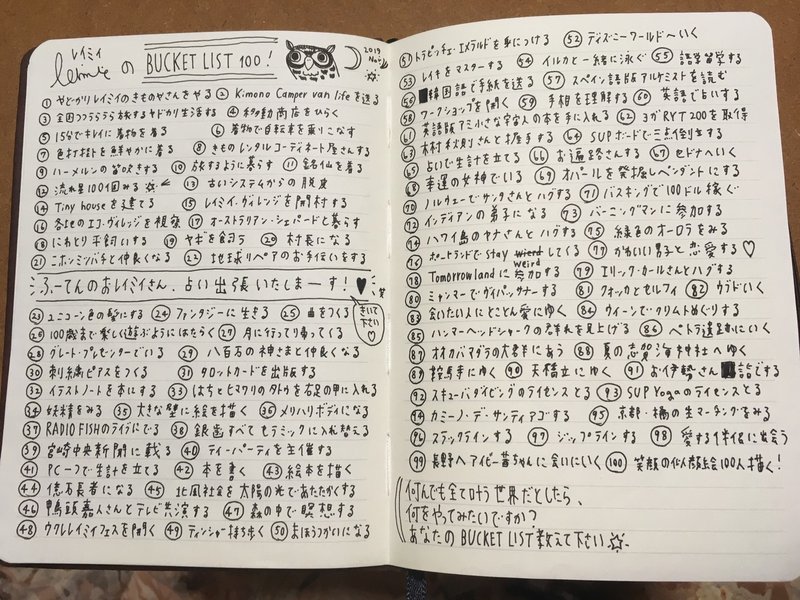 レイミイ
Lemieの BUCKET LIST 100! 2019 Nov
① やどかりレイミイのきものやさんをやる ② Kimono Camper van lifeを送る
③ 全国フラフラ旅するヤドカリ生活する ④ 移動商店をひらく
⑤ 15分でキレイに着物を着る ⑥ 着物で自転車を乗りこなす
⑦ 色打掛を鮮やかに着る ⑧ きものレンタルコーディネート屋さんする
⑨ ハーメルンの笛吹きする ⑩ 旅するように暮らす ⑪ 銘仙を着る
⑫ 流れ星100個みる ⑬ 古いシステムからの脱皮
⑭ Tiny houseを建てる ⑮ レイミイ・ヴィレッジを開村する
⑯ 各地のエコ・ヴィレッジを視察 ⑰ オーストラリアン・シェパードと暮らす
⑱ にわとり平飼いする ⑲ ヤギを飼う ⑳ 村長になる
㉑ ニホンミツバチと仲良くなる ㉒ 地球リペアのお手伝いをする
ふーてんのおレイミイさん、占い出張いたしまーす!
きいて下さい
㉓ ユニコーン色の髪にする ㉔ ファンタジーに生きる ㉕ 曲をつくる
㉖ 100歳まで楽しく遊ぶようにはたらく ㉗ 月に行って帰ってくる
㉘ グレート・プレゼンターでいる ㉙ 八百万の神さまと仲良くなる
㉚ 刺繍ピアスをつくる ㉛ タロットカードを出版する
㉜ イラストノートを本にする ㉝ はちとヒマワリのタトゥを右足の甲に入れる
㉞ 妖精をみる ㉟ 大きな壁に絵を描く ㊱ メリハリボディになる
㊲ RADIO FISHのライブにでる ㊳ 銀歯すべてセラミックに入れ替える
㊴ 宮崎中央新聞に載る ㊵ ティーパーティを主催する
㊶ PC一つで生計を立てる ㊷ 本を書く ㊸ 絵本を描く
㊹ 億万長者になる ㊺ 北風社会を太陽の光であたたかくする
㊻ 鴨頭嘉人さんとテレビ共演する ㊼ 森の中で瞑想する
㊽ ウクレレイミイフェスを開く ㊾ ティンシャー持ち歩く ㊿ まほうつかいになる
51 トラピッチェ・エメラルドを手につける 52 ディズニーワールドへいく
53 レイキをマスターする 54 イルカと一緒に泳ぐ 55 語学留学する
56 韓国語で手紙を送る 57 スペイン語版アルケミストを読む
58 ワークショップを開く 59 手相を理解する 60 英語で占いする
61 英語版アミ小さな宇宙人の本を手に入れる 62 ヨガRYT200を取得
63 木村秋則さんと握手する 64 SUPボードで三点倒立する
65 占いで生計を立てる 66 お遍路さんする 67 セドナへいく
68 幸運の女神でいる 69 オパールを発掘しペンダントにする
70 ノルウェーでサンタさんとハグする 71 バスキングで100ドル稼ぐ
72 インディアンの弟子になる 73 バーニングマンに参加する
74 ハワイ島のヤナさんとハグする 75 緑色のオーロラをみる
76 ポートランドでstay weirdしてくる 77 かわいい男子と恋愛する♡
78 Tomorrowlandに参加する 79 エリック・カールさんとハグする
80 ミャンマーでヴィパッサナーする 81 クォッカとセルフィ 82 ウブドいく
83 会いたい人にとことん愛にゆく 84 ウィーンでクリムトめぐりする
85 ハンマーヘッドシャークの群れを見上げる 86 ペトラ遺跡にいく
87 オオカバマダラの大群にあう 88 夏の志賀海神社へゆく
89 鞍馬寺にゆく 90 天橋立にゆく 91 お伊勢さん詣でする
92 スキューバダイビングのライセンスとる 93 SUP Yogaのライセンスとる
94 カミーノ・デ・サンティアゴする 95 京都・橘の生マーチングをみる
96 スラックラインする 97 ジップラインする 98 愛する伴侶に出会う
99 長野へアイビー茜ちゃんに会いにいく 100 笑顔の似人顔絵100人描く!
何んでも全て叶う世界だとしたら、
何をやってみたいですか?
あなたの BUCKET LIST 教えて下さい☆